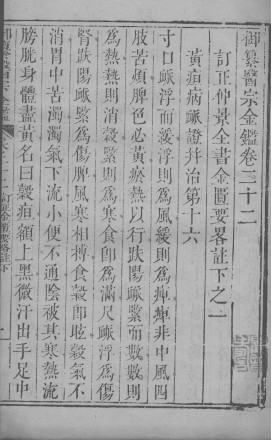 御纂醫宗金鑑卷二十二
訂正仲景全書金匱要畧註下之一
黃疸病脈證并治第十六
寸口脈浮而緩浮則為風緩則為痺痺非中風四
肢苦煩脾色必黃瘀熱以行趺陽脈緊而數數則
為熱熱則消穀緊則為寒食即為滿尺脈浮為傷
腎趺陽脈緊為傷脾風寒相搏食穀即眩穀氣不
消胃中苦濁濁氣下流小便不通陰被其寒熱流
膀胱身體盡黃名曰穀疸額上黑微汗出手足中